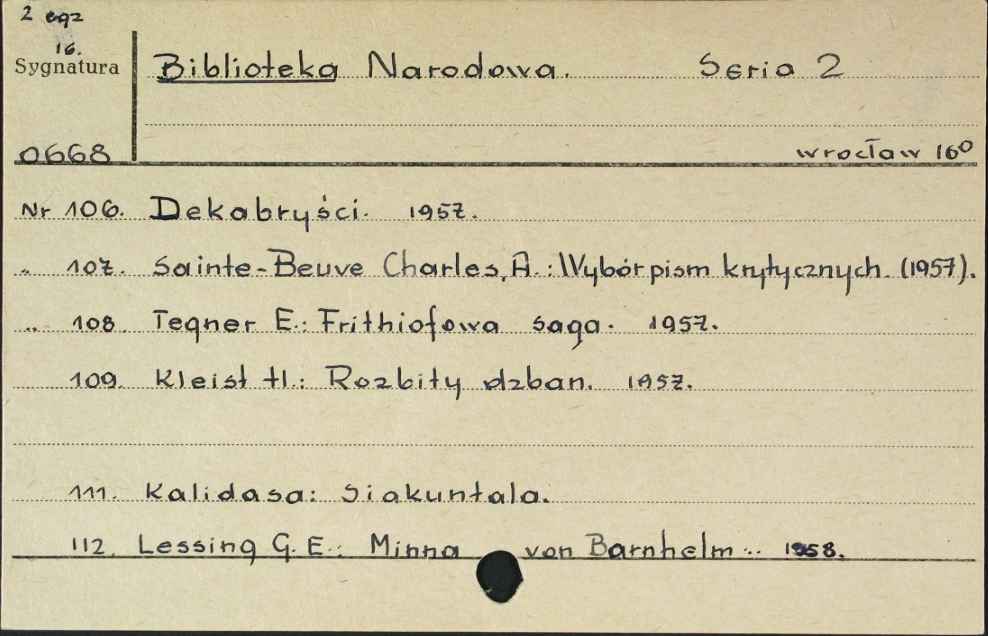 2 egz
16.
Sygnatura
Biblioteka Narodowa. Seria 2
0668
Wrocław 16⁰
Nr 106. Dekabryści. 1957.
„ 107. Sainte-Beuve Charles, A.: Wybór pism krytycznych. (1957).
„ 108. Tegner E.: Frithiofowa saga. 1957.
109. Kleist H.: Rozbity dzban. 1957.
111. Kalidasa: Siakuntala.
112. Lessing G. E.: Minna von Barnhelm .. 1958.